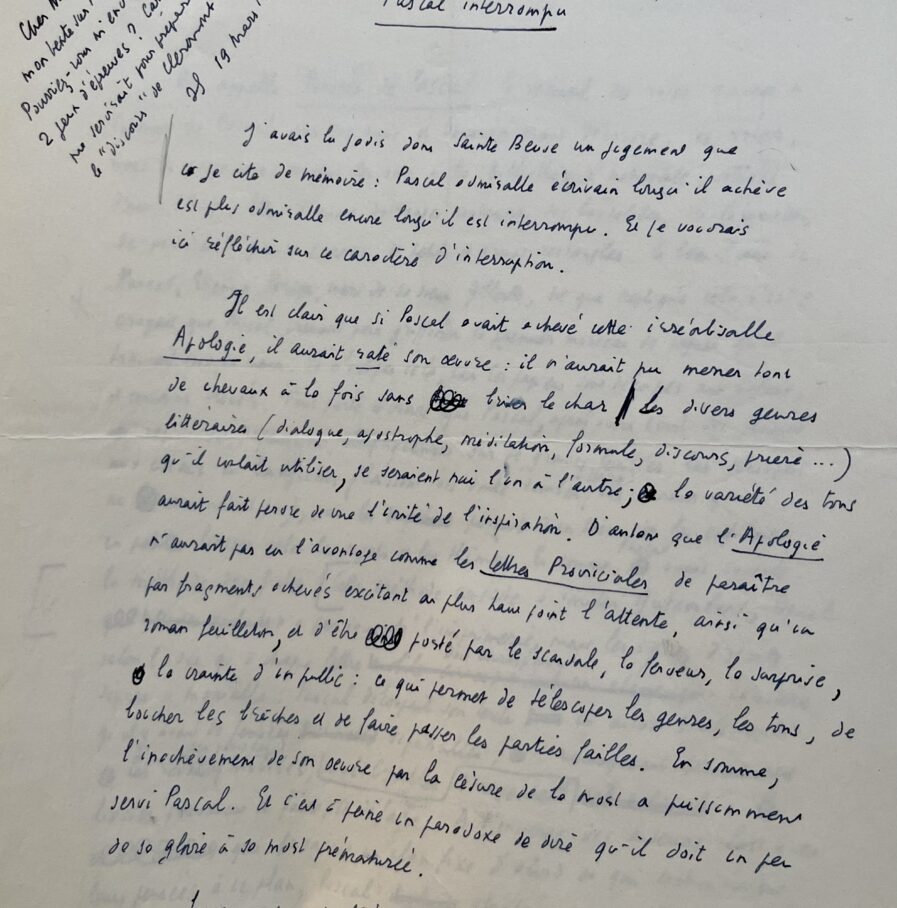 Pascal interrompu
Cher M
mon texte sur
Pouvez-vous m'en
2 jeux d'épreuves ? Car
me servirait pour prépar
le "discours" de Clermont
19 mars
J'avais lu jadis dans Sainte Beuve un jugement que
je cite de mémoire : Pascal admirable écrivain lorsqu'il achève
est plus admirable encore lorsqu'il est interrompu. Et je voudrais
ici réfléchir sur ce caractère d'interruption.
Il est clair que si Pascal avait achevé cette irréalisable
Apologie, il aurait raté son œuvre : il n'aurait pu mener tant
de chevaux à la fois sans briser le char / Les divers genres
littéraires (dialogue, apostrophe, méditation, formule, discours, prière ...)
qu'il voulait utiliser, se seraient nui l'un à l'autre ; la variété des tons
aurait fait perdre de vue l'unité de l'inspiration. D'autant que l'Apologie
n'aurait pas eu l'avantage comme les lettres Provinciales de paraître
par fragments achevés excitant au plus haut point l'attente, ainsi qu'un
roman feuilleton, et d'être porté par le scandale, la ferveur, la surprise,
la crainte d'un public : ce qui permet de télescoper les genres, les tons, de
boucher les brèches et de faire passer les parties faibles. En somme,
l'inachèvement de son œuvre par la césure de la mort a puissamment
servi Pascal. Et c'est à peine un paradoxe de dire qu'il doit un peu
de sa gloire à sa mort prématurée.